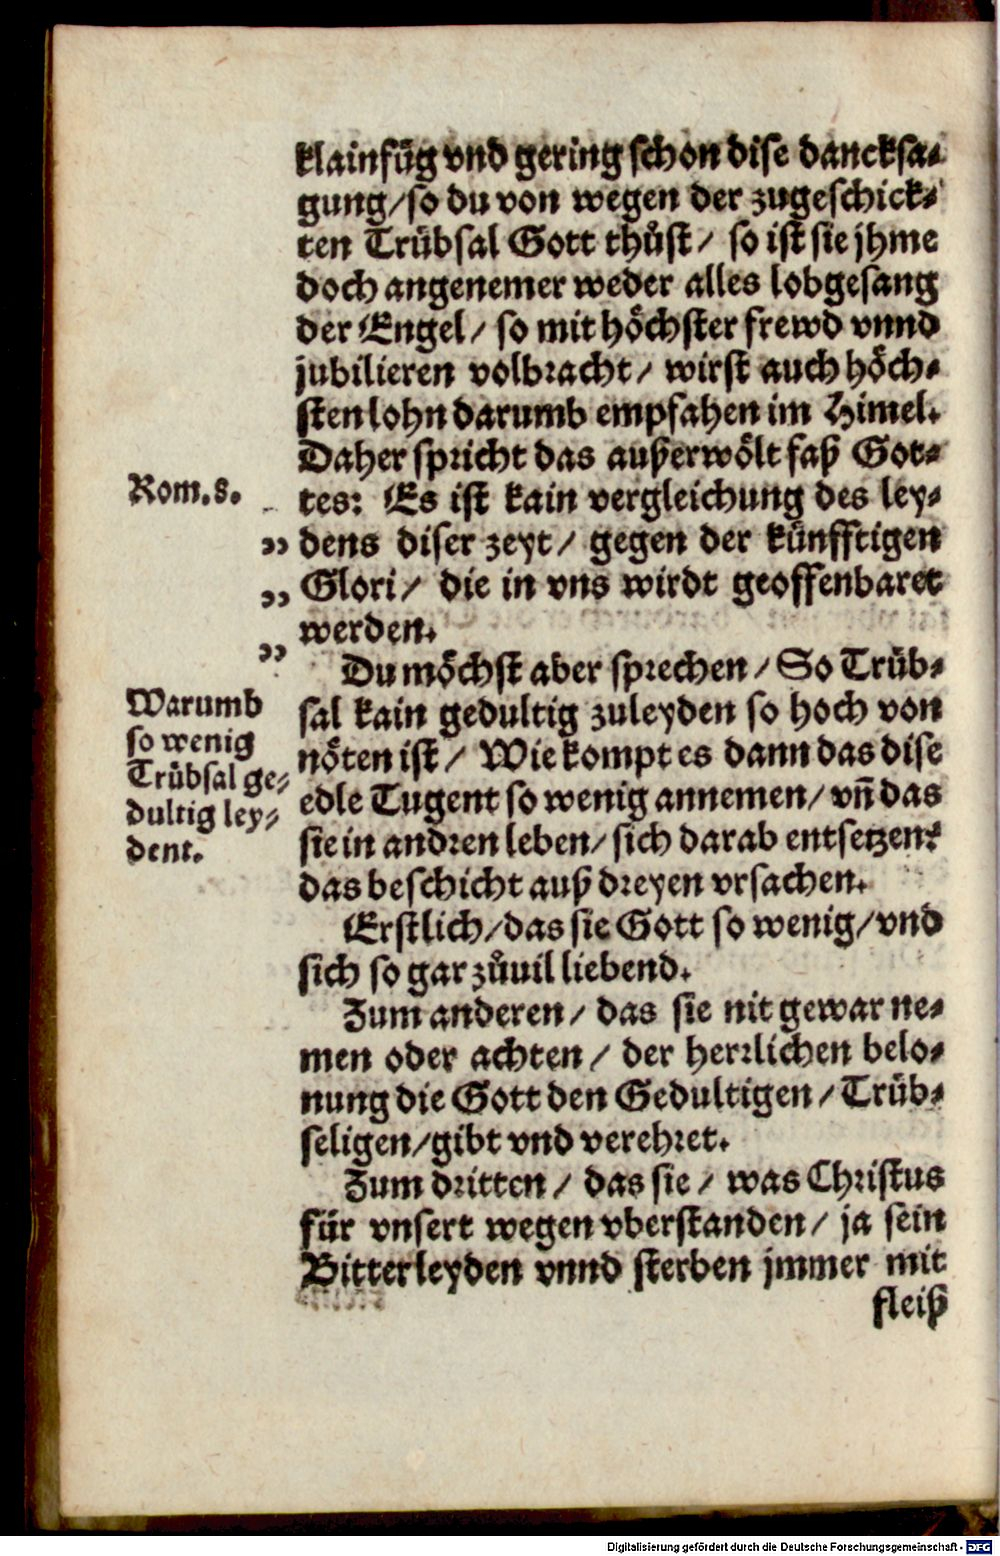 klainfüg vnd gering schon dise dancksa-
gung/so du von wegen der zugeschick-
ten Trübsal Gott thůst/ so ist sie jhme
doch angenemer weder alles lobgesang
der Engel/ so mit höchster frewd vnnd
jubilieren volbracht/ wirst auch höch-
sten lohn darumb empfahen im Himel.
Daher spricht das außerwölt faß Got-
tes: Es ist kain vergleichung des ley-
dens diser zeyt/ gegen der künfftigen
Glori/ die in vns wirdt geoffenbaret
werden.
Du möchst aber sprechen/ So Trüb-
sal kain gedultig zuleyden so hoch von
nöten ist/ Wie kompt es dann das dise
edle Tugent so wenig annemen/ vñ das
sie in andren leben/ sich darab entsetzen?
das beschicht auß dreyen vrsachen.
Erstlich/das sie Gott so wenig/vnd
sich so gar zůuil liebend.
Zum anderen/ das sie nit gewar ne-
men oder achten/ der herrlichen belo-
nung die Gott den Gedultigen/ Trüb-
seligen/gibt vnd verehret.
Zum dritten/ das sie/ was Christus
für vnsert wegen vberstanden/ ja sein
Bitter leyden vnnd sterben jmmer mit
fleiß
Rom.8.
„
„
„
Warumb
so wenig
Trübsal ge-
dultig ley-
dent.
Digitalisierung gefördert durch die Deutsche Forschungsgemeinschaft - DFG